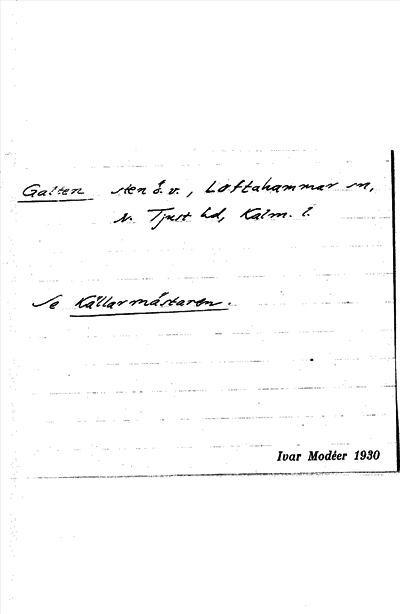 Galten sten ö. v., Loftahammar sn,
N. Tjust hd, Kalm. l.
Se Källarmästaren.
Ivar Modéer 1930